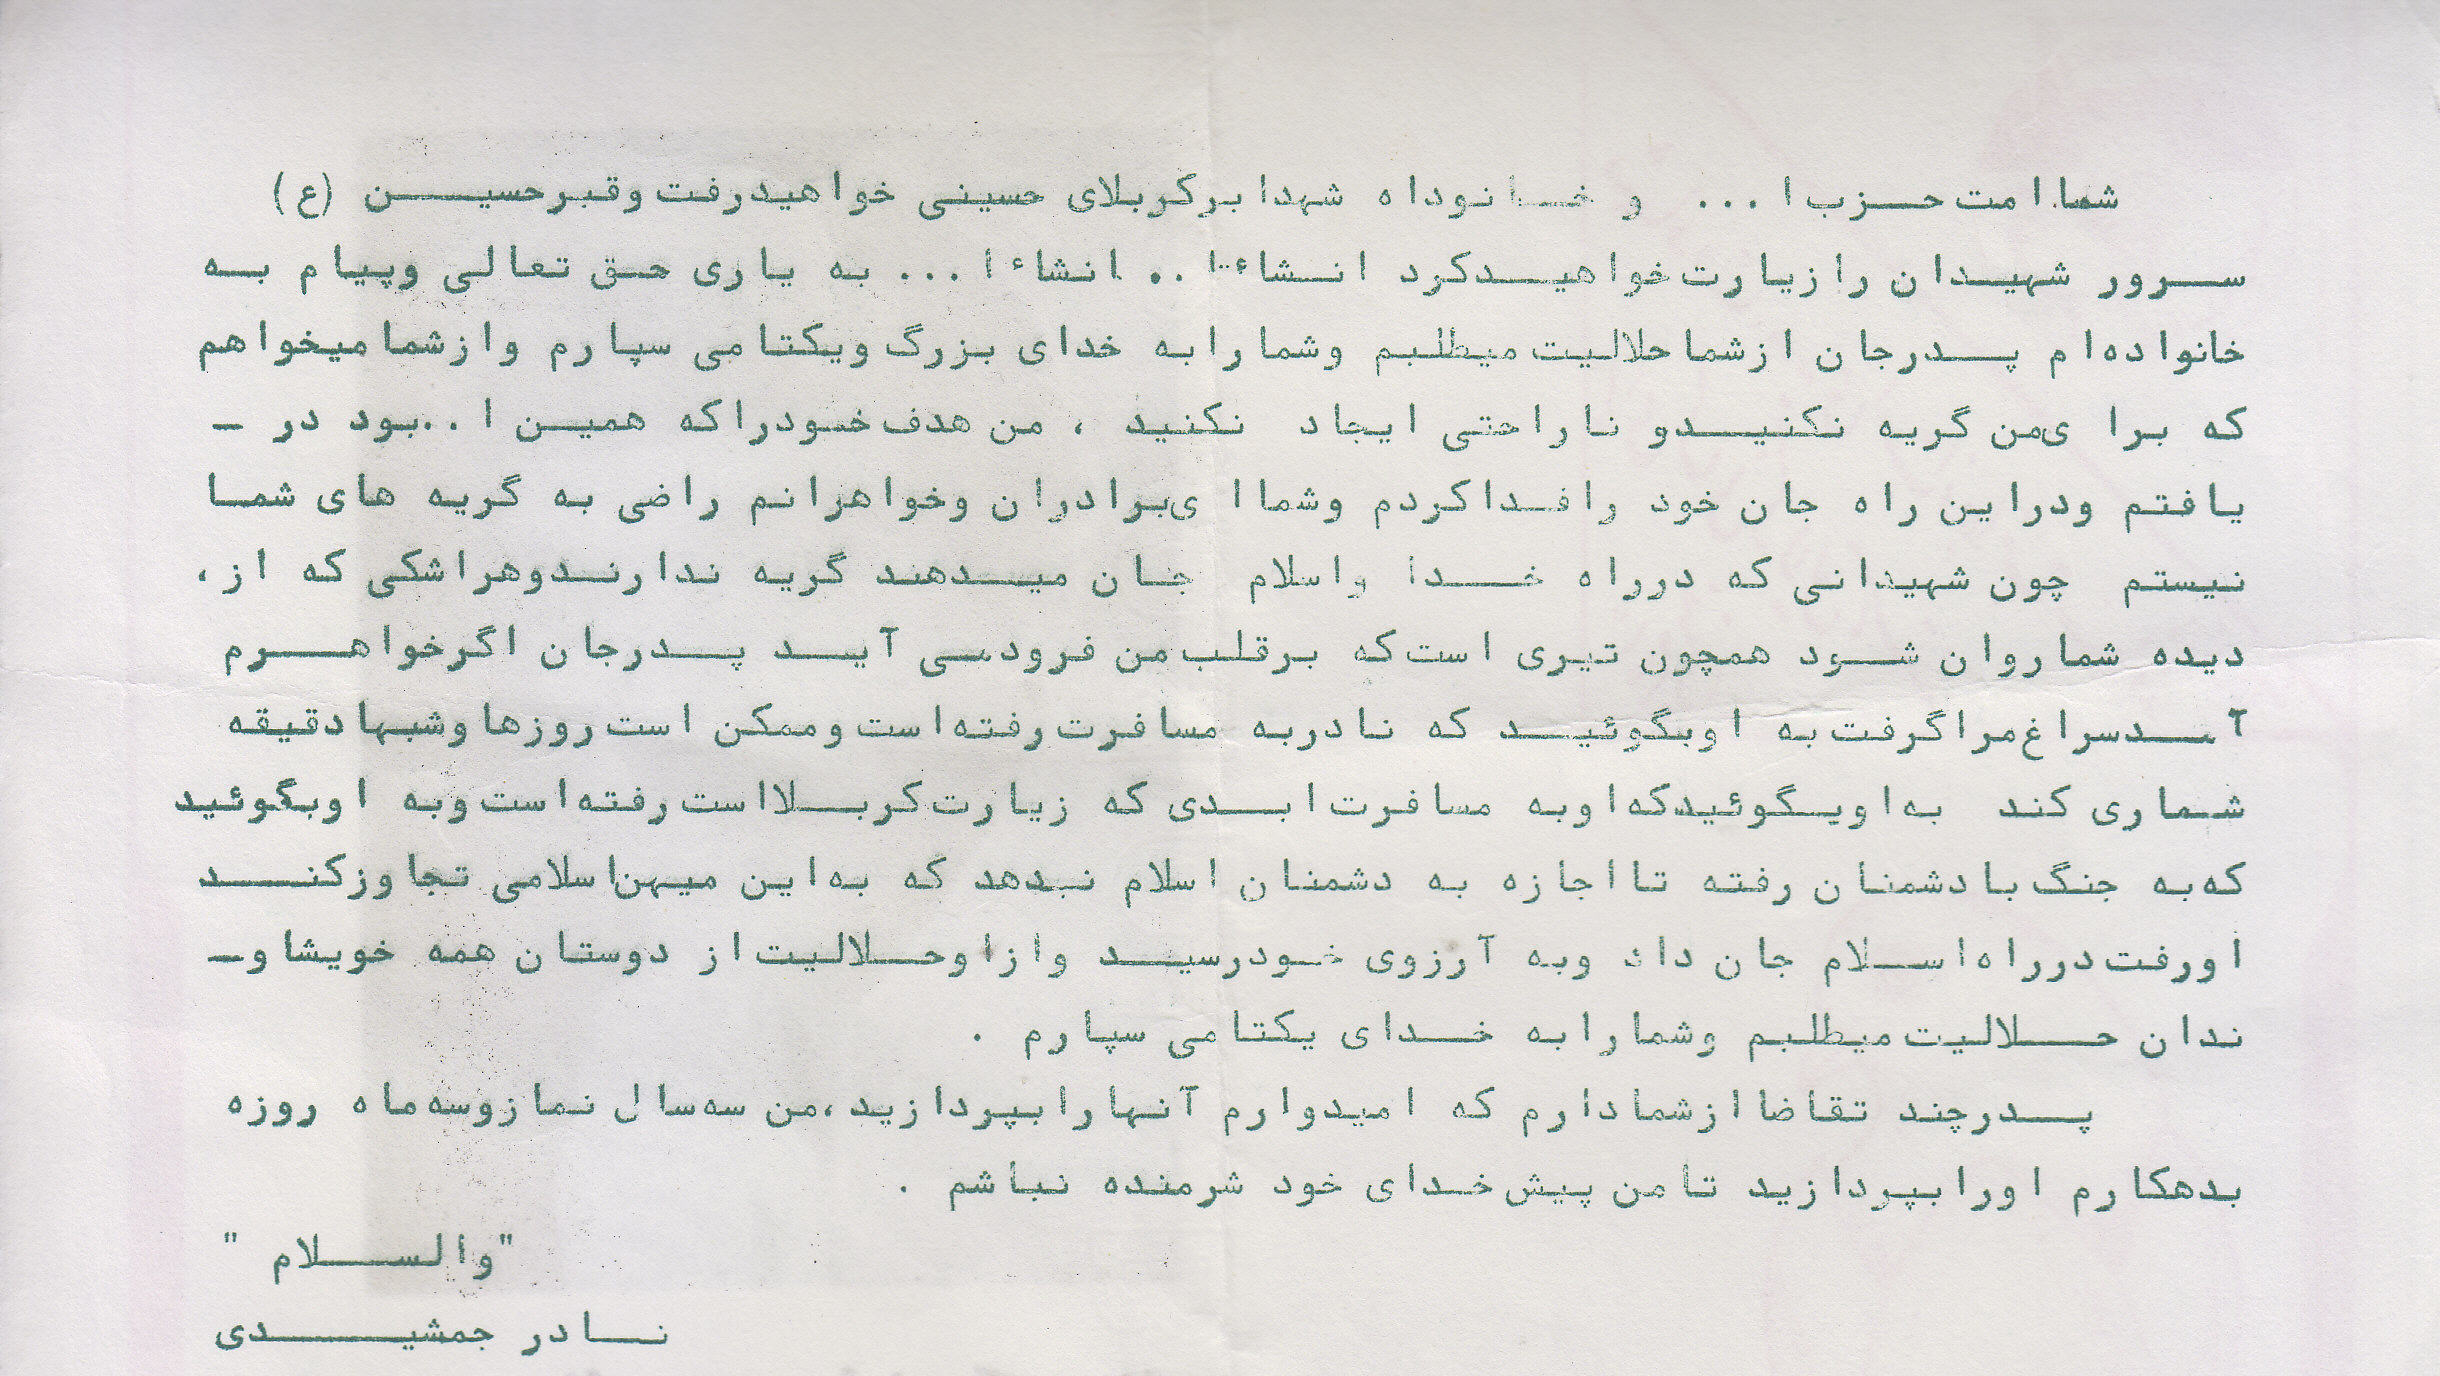 شما امت حزب ا... و خانوداه شهدا بر کربلای حسینی خواهید رفت و قبر حسین (ع)
سرور شهیدان را زیارت خواهید کرد انشاءا.. انشاءا... به یاری حق تعالی و پیام به
خانواده‌ام پدر جان از شما حلالیت میطلبم و شما را به خدای بزرگ و یکتا می سپارم و از شما میخواهم
که برای من گریه نکنید و ناراحتی ایجاد نکنید ، من هدف خود را که همین ا..بود در -
یافتم و در این راه جان خود را فدا کردم و شما ای برادران و خواهرانم راضی به گریه های شما
نیستم چون شهیدانی که در راه خدا واسلام جان میدهند گریه ندارند و هر اشکی که از،
دیده شما روان شود همچون تیری است که بر قلب من فرود می آید پدر جان اگر خواهرم
آمد سراغ مرا گرفت به او بگوئید که نادر به مسافرت رفته است و ممکن است روزها و شبها دقیقه
شماری کند به او بگوئید که او به مسافرت ابدی که زیارت کربلا است رفته است و به او بگوئید
که به جنگ با دشمنان رفته تا اجازه به دشمنان اسلام ندهد که به این میهن اسلامی تجاوز کند
او رفت در راه اسلام جان داد و به آرزوی خود رسید و از او حلالیت از دوستان همه خویشاو-
ندان حلالیت میطلبم و شما را به خدای یکتا می سپارم .
پدر چند تقاضا از شما دارم که امیدوارم آنها را بپردازید،من سه سال نماز و سه ماه روزه
بدهکارم او را بپردازید تا من پیش خدای خود شرمنده نباشم .
"والسلام "
نادر جمشیدی